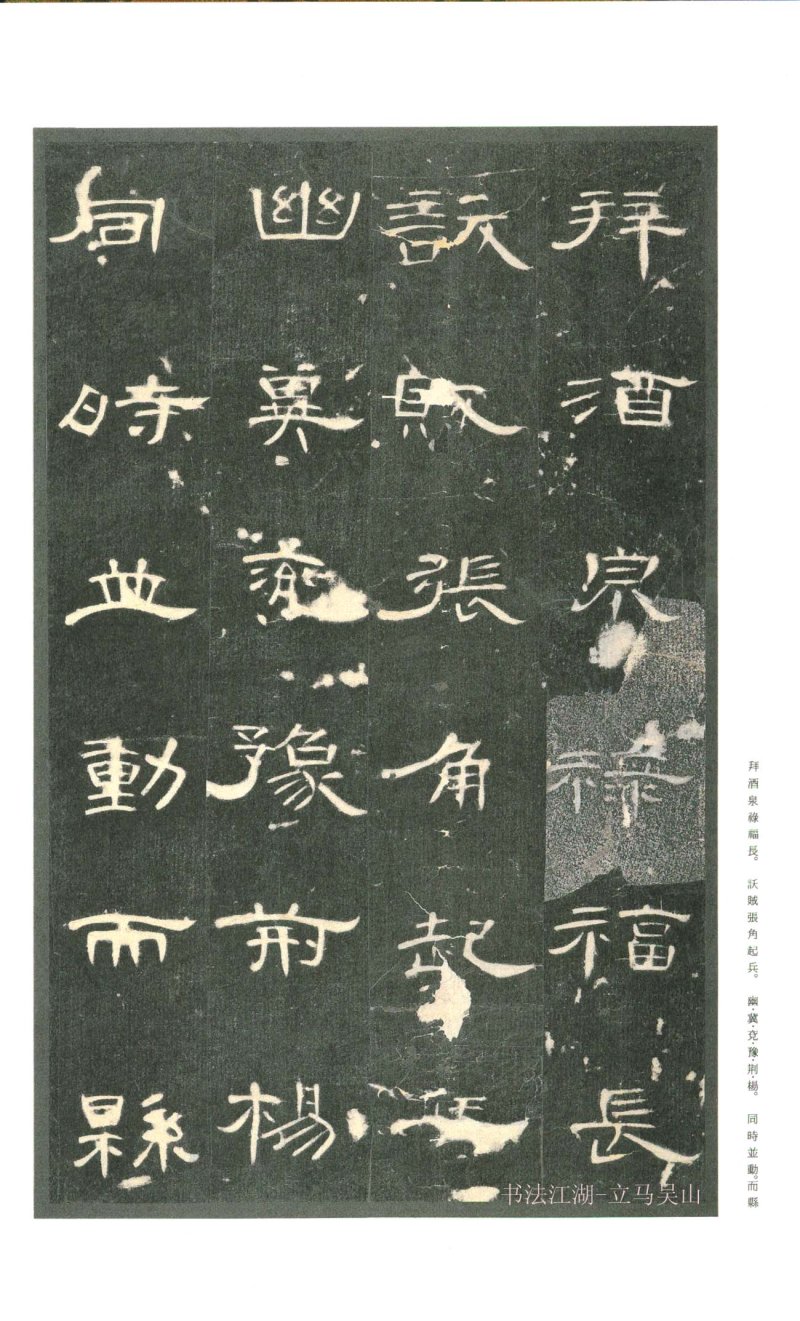 拜酒泉祿福長
訞賊張角起兵
幽冀兖豫荊楊
同時並動而縣
拜酒泉祿福長。訞賊張角起兵。幽·冀·兗·豫·荆·楊。同時並動。而縣
书法江湖-立马吴山